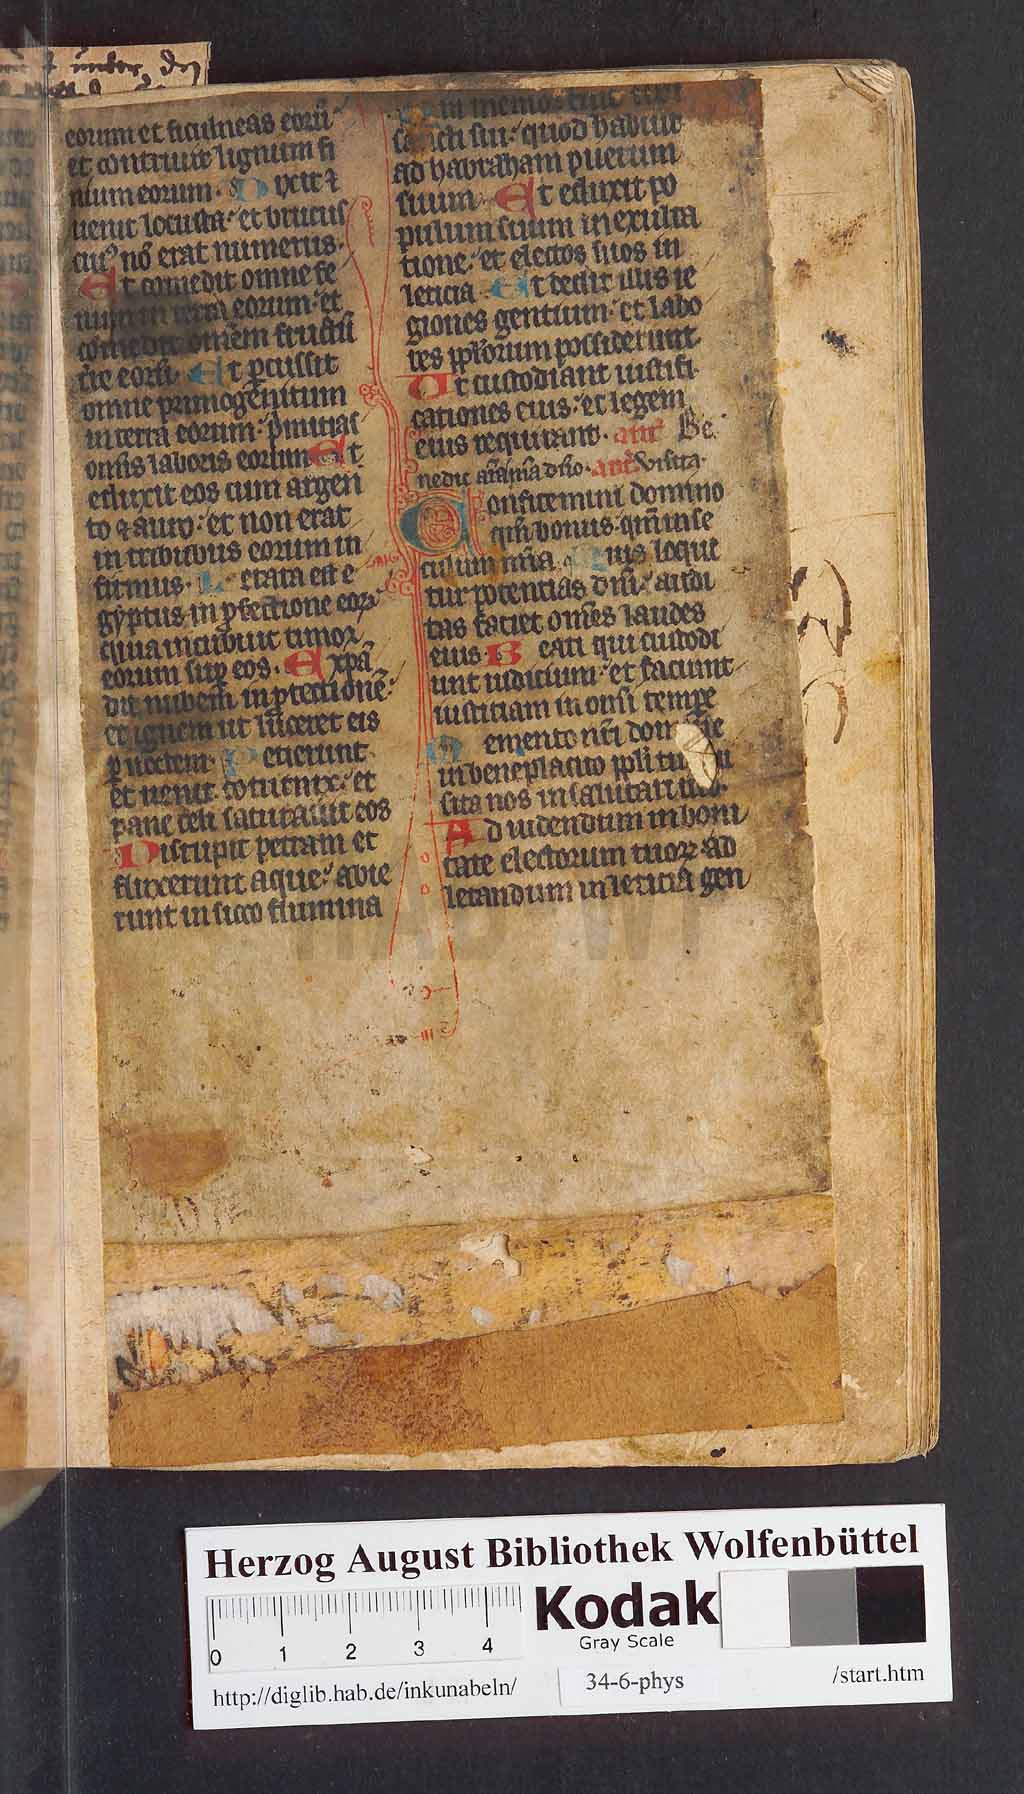 eorum et ficulneas eorū
et contriuit lignum fi
nium eorum. Dixit ⁊
uenit locusta: et brucus
cui⁹ nō erat numerus.
Et comedit omne fe
num in terra eorum: et
comedit omēm fructū
tr̄e eorū. Et ꝑcussit
omne primogenitum
in terra eorum: p̄mitias
om̄is laboris eorum Et
eduxit eos cum argen
to ⁊ auro: et non erat
in tribubus eorum in
firmus. Letata est e
gyptus in ꝓfectione eoꝝ:
quia incubuit timor
eorum suꝑ eos. Expā
dit nubem in ꝓtectionē:
et ignem ut luceret eis
ꝑ noctem. Petierunt
et uenit coturnix: et
pane celi saturauit eos
Disrupit petram et
fluxerunt aque: abie
runt in sicco flumina
memor fuit uerbi
sancti sui: quod habuit
ad habraham puerum
suum. Et eduxit po
pulum suum in exulta
tione: et electos suos in
leticia. Et dedit illis re
giones gentium: et labo
res ipl̓orum possiderunt.
Ut custodiant iustifi
cationes eius: et legem
eius requirant. ant̄ Be
nedic aīama dn̄o. ant̄ Visita.
Confitemini domino
qm̄ bonus: qm̄ in se
culum mīa. Quis loque
tur potentias dn̄i: audi
tas faciet om̄es laudes
eius. Beati qui custodi
unt iudicium: et faciunt
iusticiam in om̄i tempr̄e
Memento nr̄i dom
in beneplacito ppl̓i tui
sita nos in salutari tuo.
Ad uidendum in boni
tate electorum tuoꝝ ad
letandum in leticia gen
Herzog August Bibliothek Wolfenbüttel
0 1 2 3 4
Kodak
Gray Scale
http://diglib.hab.de/inkunabeln/
34-6-phys
/start.htm
HAB WF